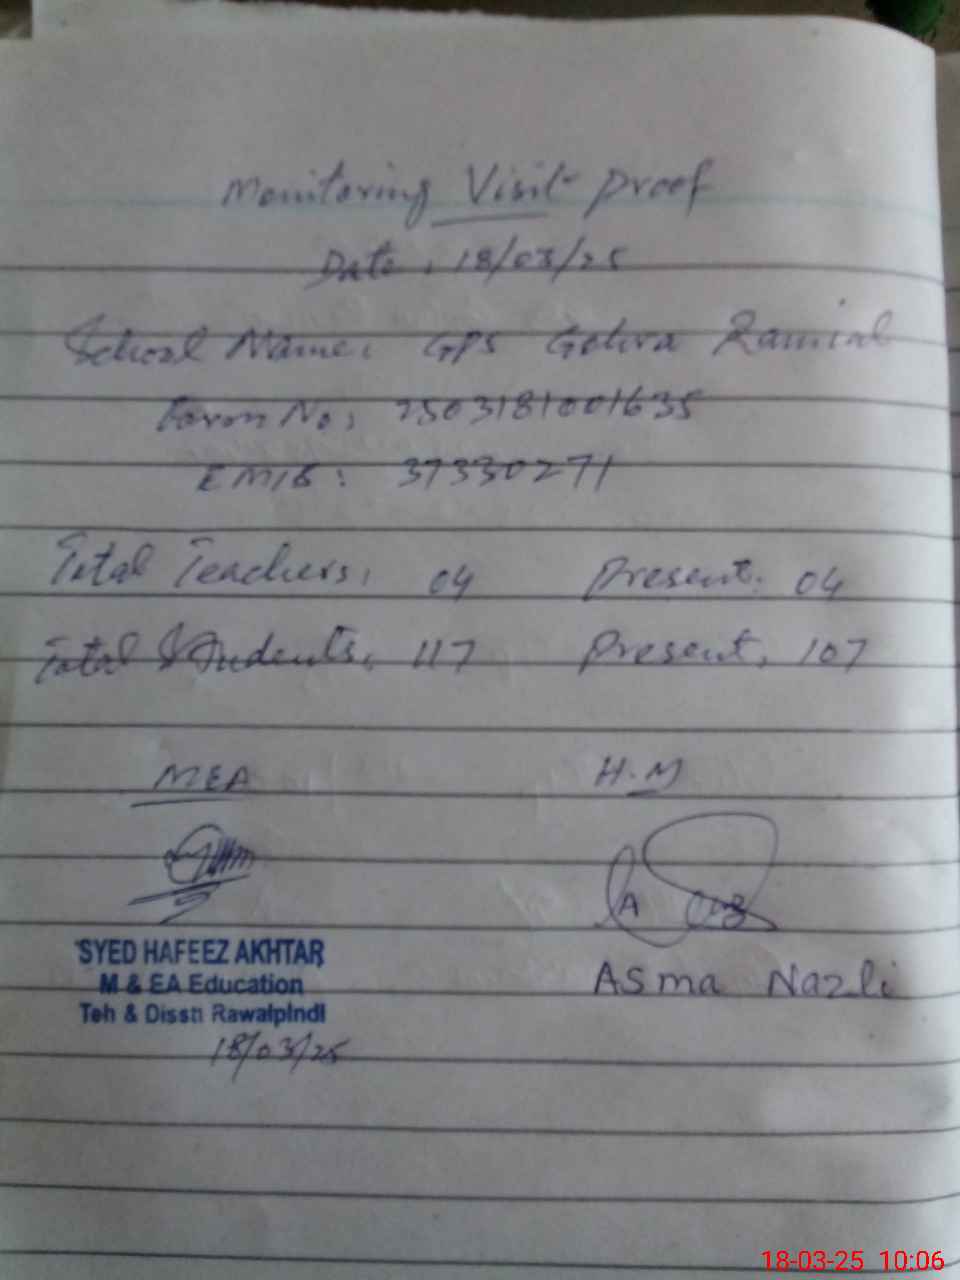 Monitoring Visit Proof
Date: 18/03/25
School Name: GPS Gohra Ramial
Form No: 2503181001635
EMIS: 37330271
Total Teachers: 04 Present: 04
Total Students: 117 Present: 107
MEA H.M
SYED HAFEEZ AKHTAR
M & EA Education
Teh & Disstt Rawalpindi
ASma Nazli
18/03/25
18-03-25 10:06